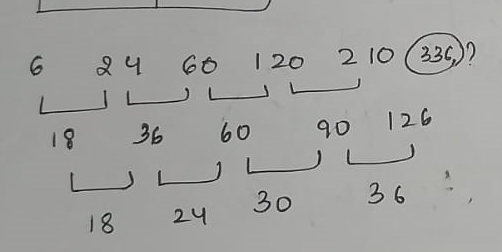 6 24 60 120 210 336,?
18 36 60 90 126
18 24 30 36